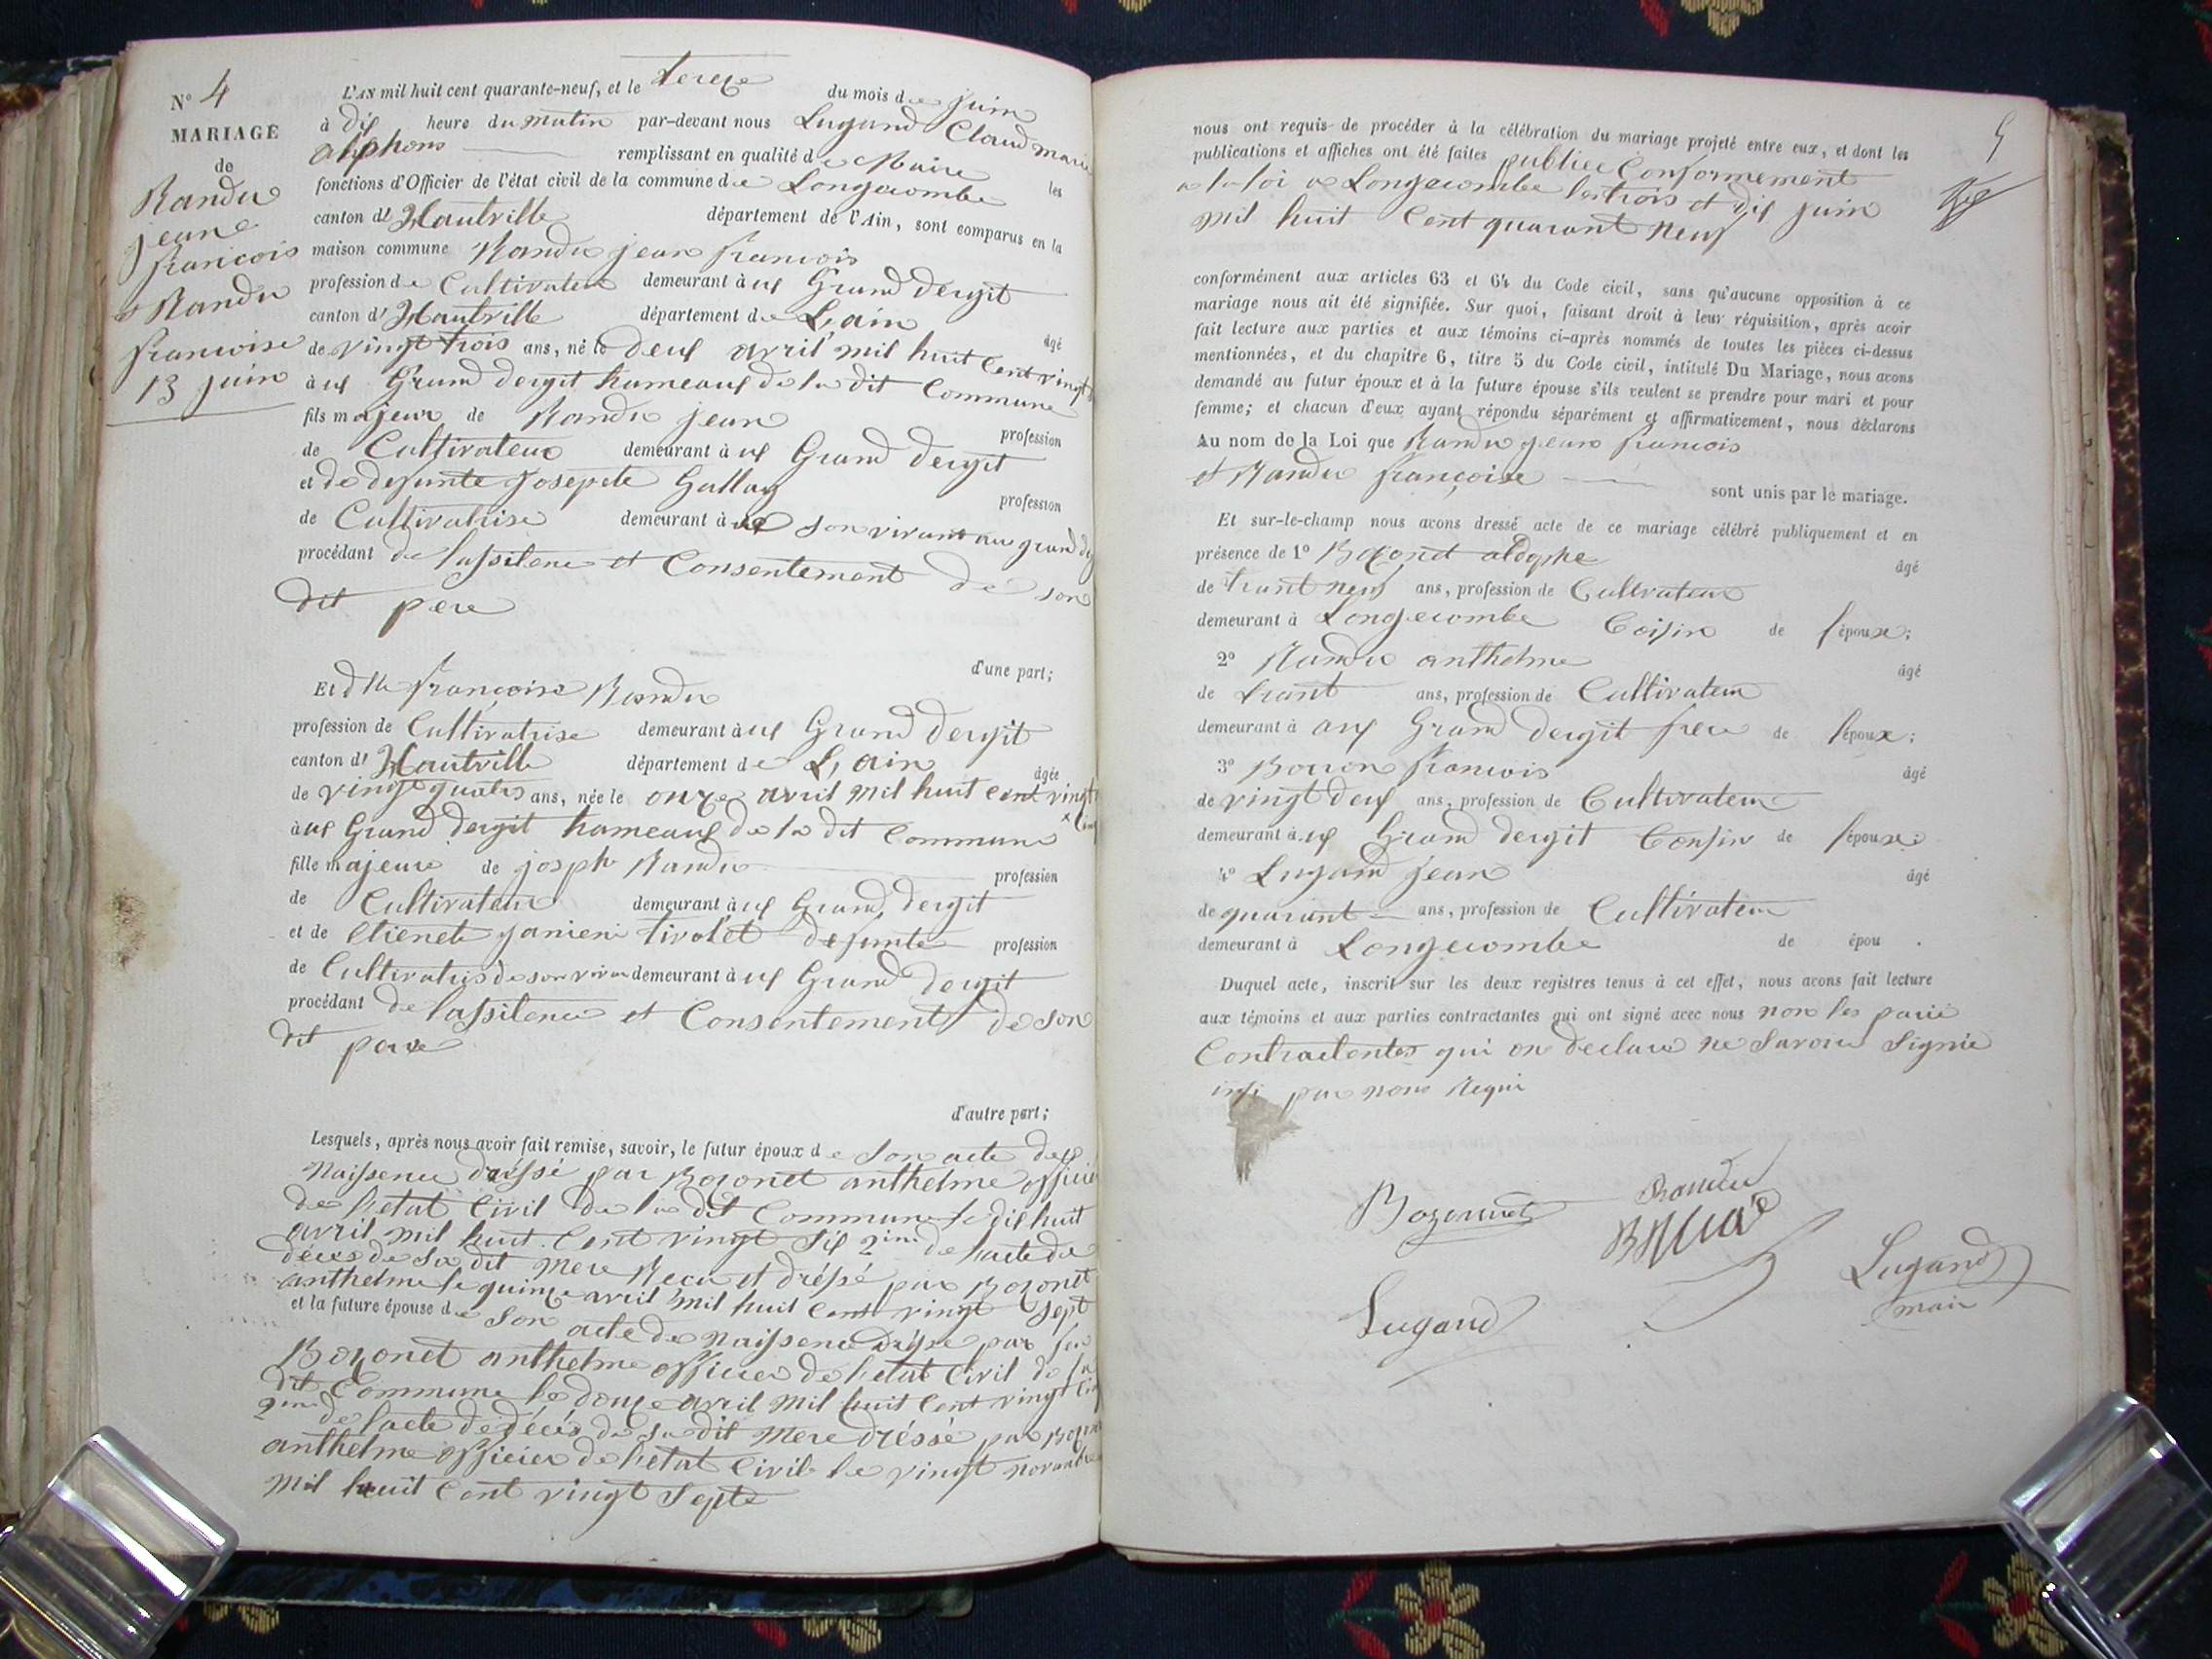 N° 4
MARIAGE
de
Randu
jeane
francois
& Randu
francoise
13 juin
L'AN mil huit cent quarante-neuf, et le treize du mois de juin
à dix heure du matin par-devant nous Lugand Claud marie
alphons remplissant en qualité de Maire les
fonctions d'Officier de l'état civil de la commune de Longecombe
canton d' Hautville département de l'Ain, sont comparus en la
maison commune Randu jean francois
profession de Cultivateur demeurant à ux Grand dergit
canton d' Hautville département de L'ain âgé
de vingt trois ans, né le deux avril mil huit cent vingt
à ux Grand dergit hameaux de la dit Commune
fils majeur de Randu jean profession
de Cultivateur demeurant à ux Grand dergit
et de defunte Josepete Gallay profession
de Cultivatrise demeurant à son vivant au grand
procédant de lassilence et Consentement de son
dit pere
d'une part;
Et dlle françoise Randu
profession de Cultivatrise demeurant à ux Grand dergit
canton d' Hautville département de L'ain âgée
de vingt quatre ans, née le onze avril mil huit cent vingt
à ux Grand dergit hameaux de la dit Commune
fille majeure de josph Randu profession
de Cultivateur demeurant à ux Grand dergit
et de Etienete janieni tivolet defunte profession
de Cultivatris de son vivan demeurant à ux Grand dergit
procédant de lassilence et Consentement de son
dit pere
d'autre part;
Lesquels, après nous avoir fait remise, savoir, le futur époux de son acte de
Naissence dréssé par Bozonet anthelme officier
de letat Civil de la dit Commune le dix huit
avril mil huit Cent vingt six 2ime de lacte de
décès de sa dit mere Recu et dréssé par Bozonet
anthelme le quinze avril mil huit cent vingt sept
et la future épouse de son acte de Naissence dréssé par feu
Bozonet anthelme officier de letat Civil de la
dit Commune le douze avril mil huit Cent vingt
2ime de lacte de décès de sa dit mere dréssé par
anthelme officier de letat Civil le vingt novembre
mil huit Cent vingt septe
5
nous ont requis de procéder à la célébration du mariage projeté entre eux, et dont les
publications et affiches ont été faites publiee Conformement
a la loi a Longecombe les trois et dix juin
mil huit Cent quarant neuf
conformément aux articles 63 et 64 du Code civil, sans qu'aucune opposition à ce
mariage nous ait été signifiée. Sur quoi, faisant droit à leur réquisition, après avoir
fait lecture aux parties et aux témoins ci-après nommés de toutes les pièces ci-dessus
mentionnées, et du chapitre 6, titre 5 du Code civil, intitulé Du Mariage, nous avons
demandé au futur époux et à la future épouse s'ils veulent se prendre pour mari et pour
femme; et chacun d'eux ayant répondu séparément et affirmativement, nous déclarons
Au nom de la Loi que Randu jean francois
et Randu françoise sont unis par le mariage.
Et sur-le-champ nous avons dressé acte de ce mariage célébré publiquement et en
présence de 1° Bozonet aldophe âgé
de trant neuf ans, profession de Cultivateur
demeurant à Longecombe Coisin de l'époux;
2° Randu anthelme âgé
de trant ans, profession de Cultivateur
demeurant à aux Grand dergit frere de lépoux;
3° Borron francois âgé
de vingt deux ans, profession de Cultivateur
demeurant à ux Grand dergit Consin de lépouse;
4° Lugand jean âgé
de quarant ans, profession de Cultivateur
demeurant à Longecombe de épou .
Duquel acte, inscrit sur les deux registres tenus à cet effet, nous avons fait lecture
aux témoins et aux parties contractantes qui ont signé avec nous non les parie
Contractentes qui on declare ne Savoire Signie
insi par nous Requi
Bozonnet Randu
Lugand
Lugand
maire